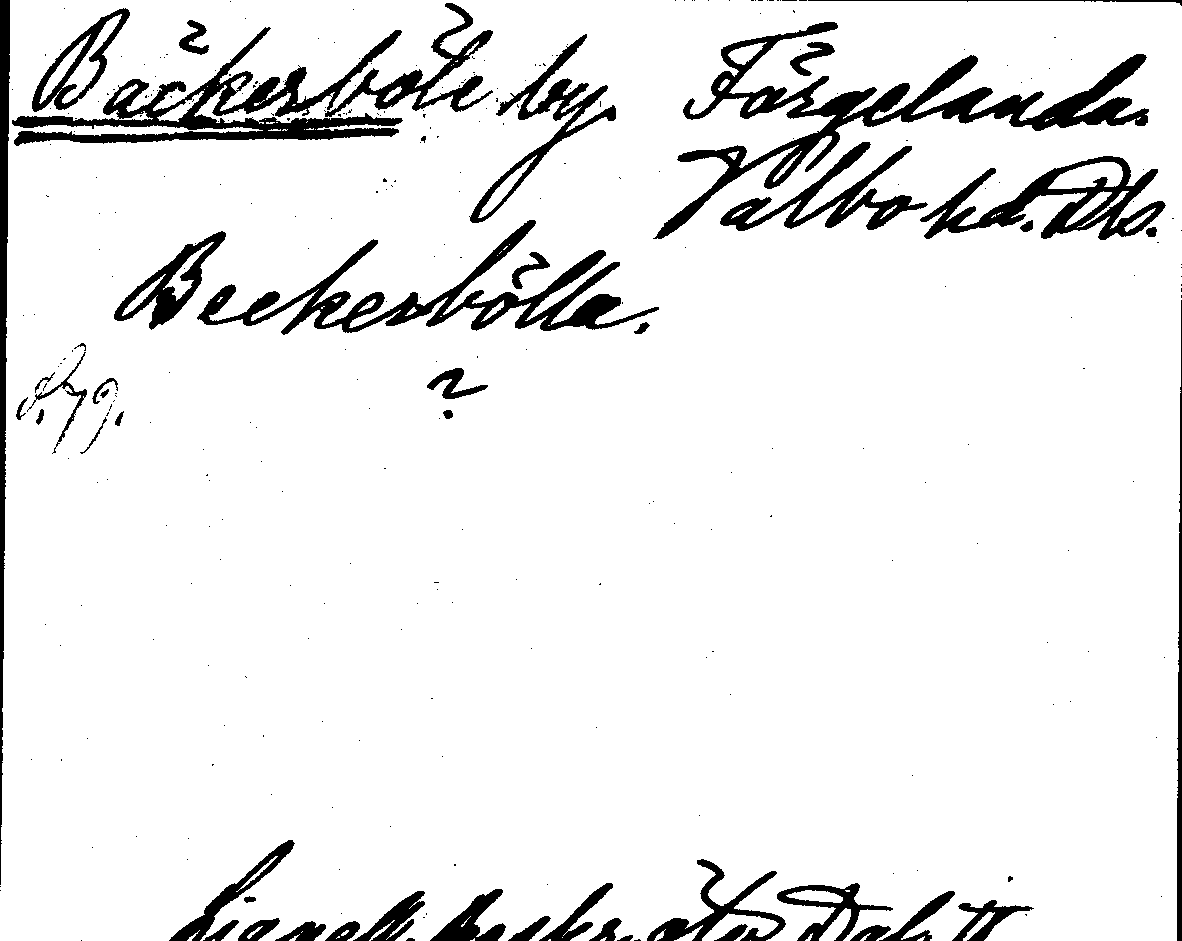 Bäckersböle by. Färgelanda.
Valbo hd. Dls.
Beckersbölla.
S. 79.
?
Lignell, Beskr. öfv. Dal. II